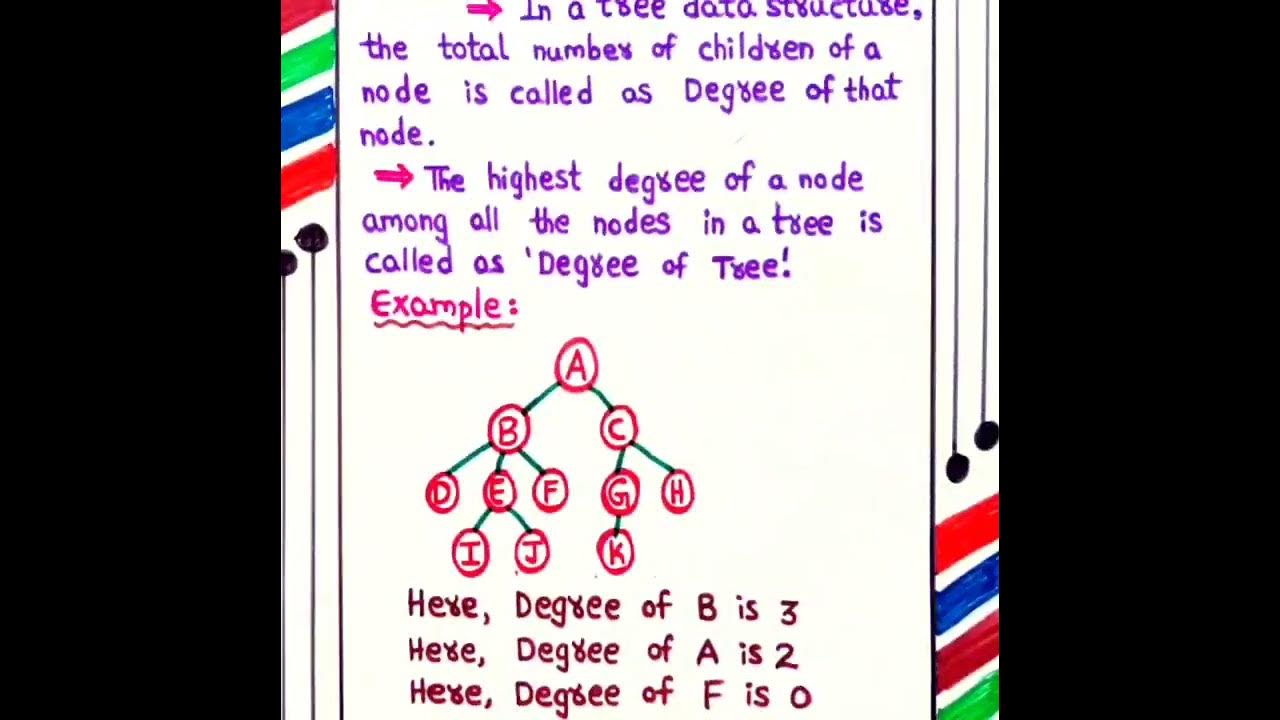 ⇒ In a tree data structure,
the total number of children of a
node is called as Degree of that
node.
⇒ The highest degree of a node
among all the nodes in a tree is
called as 'Degree of Tree!
Example:
A
B C
D E F G H
I J K
Here, Degree of B is 3
Here, Degree of A is 2
Here, Degree of F is 0